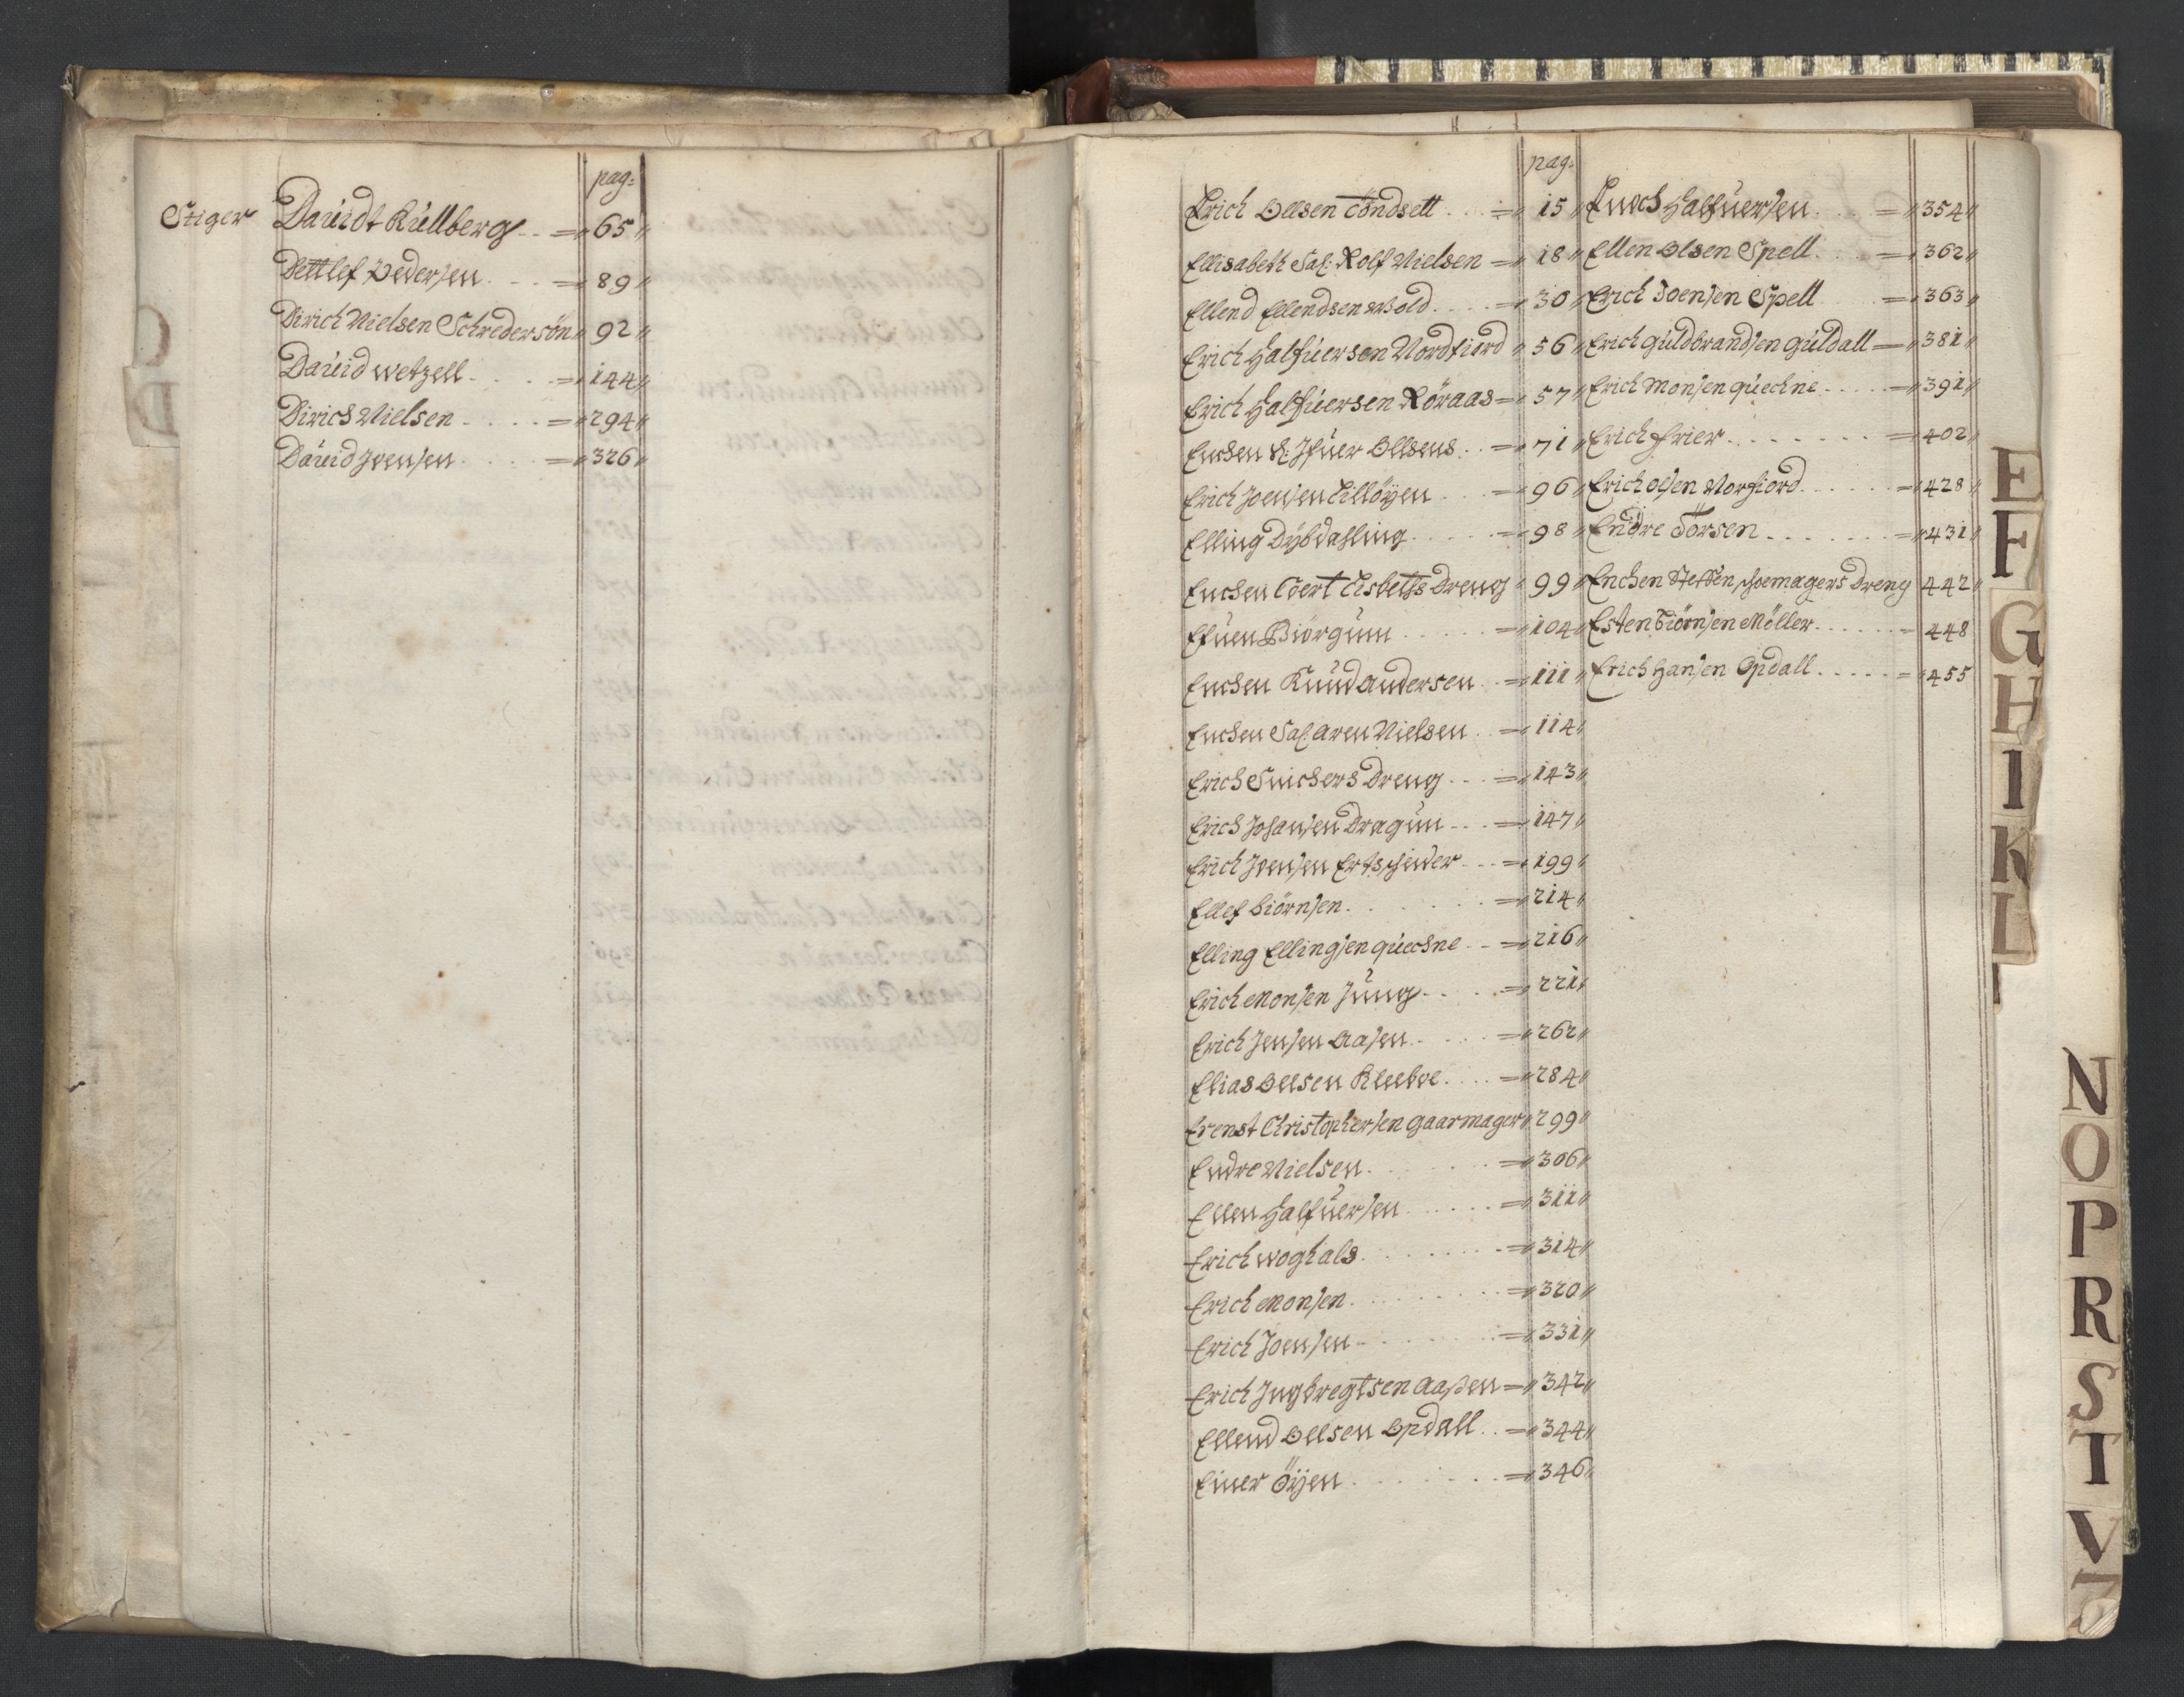 pag:
Stiger Dauidt Küllberg 65
Dettlef Pedersen 89
Dirich Nielsen Schredersön 92
Dauid Wetzell 144
Dirich Nielsen 294
Dauid Joensen 326
pag:
Erich Ollsen Töndsett 15
Ellisabeth Sal: Rolf Nielsen 18
Ellend Ellendsen Wold 30
Erich Halfuersen Nordfiord 56
Erich Halfuersen Röraas 57
Enchen S: Ifuer Ollsens 71
Erich Joensen Lillöyen 96
Elling Dybdahling 98
Enchen Coert Lisbeths Dreng 99
Efuen Biörgum 104
Enchen Knud Andersen 111
Enchen Sal: Aren Nielsen 114
Erich Snichers Dreng 143
Erich Johansen Dragun 147
Erich Joensen Ertscheider 199
Ellef Biörnsen 214
Elling Ellingsen quechne 216
Erich Monsen Jung 221
Erich Jensen Aasen 262
Elias Ollsen Kleeboe 284
Ernst Christophersen gaarmager 299
Endre Nielsen 306
Ellen Halfuersen 311
Erich Woghals 314
Erich Monsen 320
Erich Joensen 331
Erich Ingbregtsen Aaßen 342
Ellend Ollsen Opdall 344
Einer Öyen 346
Enoch Halfuersen 354
Ellen Olsen Spell 362
Erich Joensen Spell 363
Erich Guldbrandsen Guldall 381
Erich Monsen quechne 391
Erich Frier 402
Erich Olsen Norfiord 428
Endre Törsen 431
Enchen Steffen schoemagers Dreng 442
Esten Biörnsen Möller 448
Erich Hansen Opdall 455
C
D
E
F
G
H
I
K
L
N
O
P
R
S
T
V